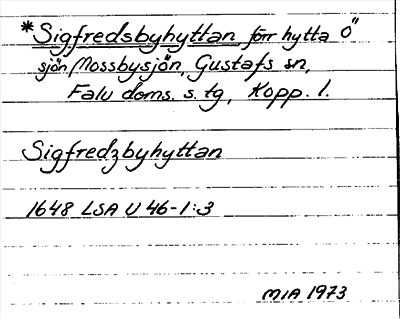 *Sigfredsbyhyttan förr hytta Ö
sjön Mossbysjön, Gustafs sn,
Falu doms. s. tg, Kopp. l.
Sigfredzbyhyttan
1648 LSA U 46-1:3
MIA 1973